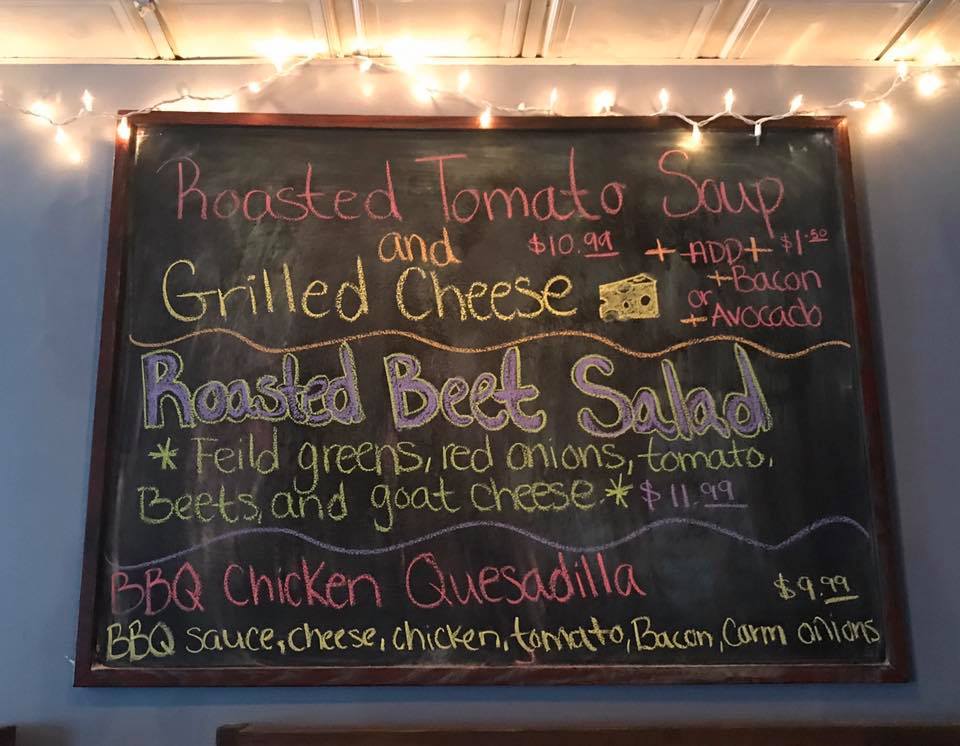 Roasted Tomato Soup
and $10.99 + ADD + $1.50
Grilled Cheese + Bacon
or + Avocado
Roasted Beet Salad
* Feild greens, red onions, tomato,
Beets, and goat cheese * $11.99
BBQ Chicken Quesadilla $9.99
BBQ sauce, cheese, chicken, tomato, Bacon, Carm onions